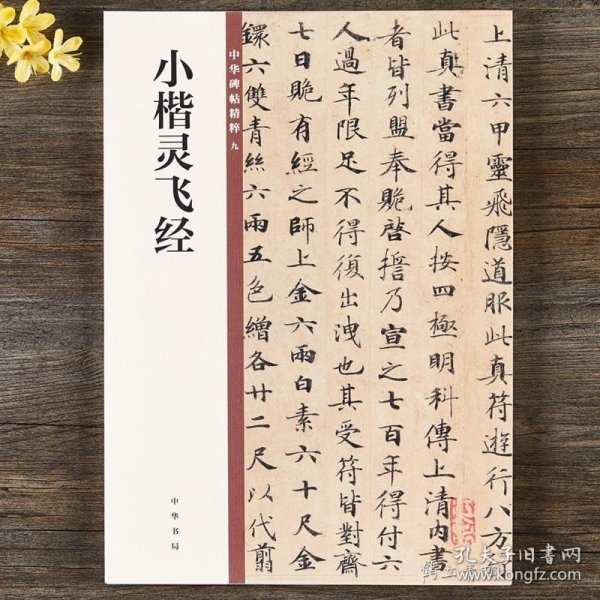 小楷灵飞经
中华碑帖精粹 九
中华书局
上清六甲靈飛隱道服此真符遊行八方
此真書當得其人按四極明科傳上清內書
者皆列盟奉贶啓擔乃宣之七百年得付六
人過年限足不得復出洩也其受符皆對齋
七日贶有經之師上金六兩白素六十尺金
鐶六雙青絲六兩五色繒各廿二尺以代翦
孔夫子旧书网
www.kongfz.com